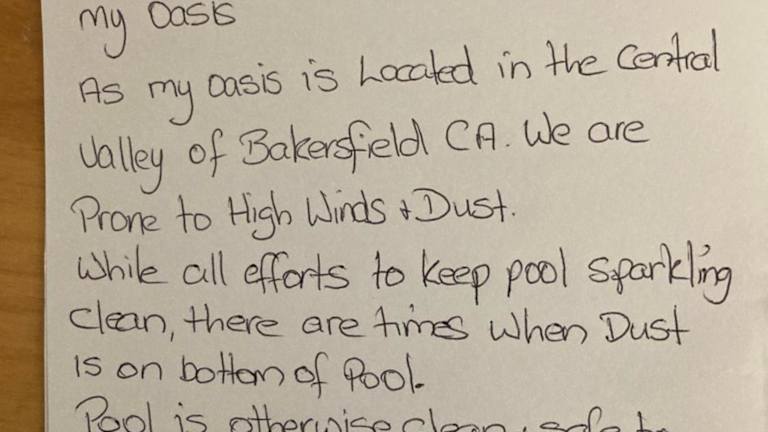 my Oasis
As my oasis is Located in the Central
Valley of Bakersfield CA. We are
Prone to High Winds + Dust.
While all efforts to keep pool sparkling
Clean, there are times when Dust
is on bottom of Pool.
Pool is otherwise clean, safe to